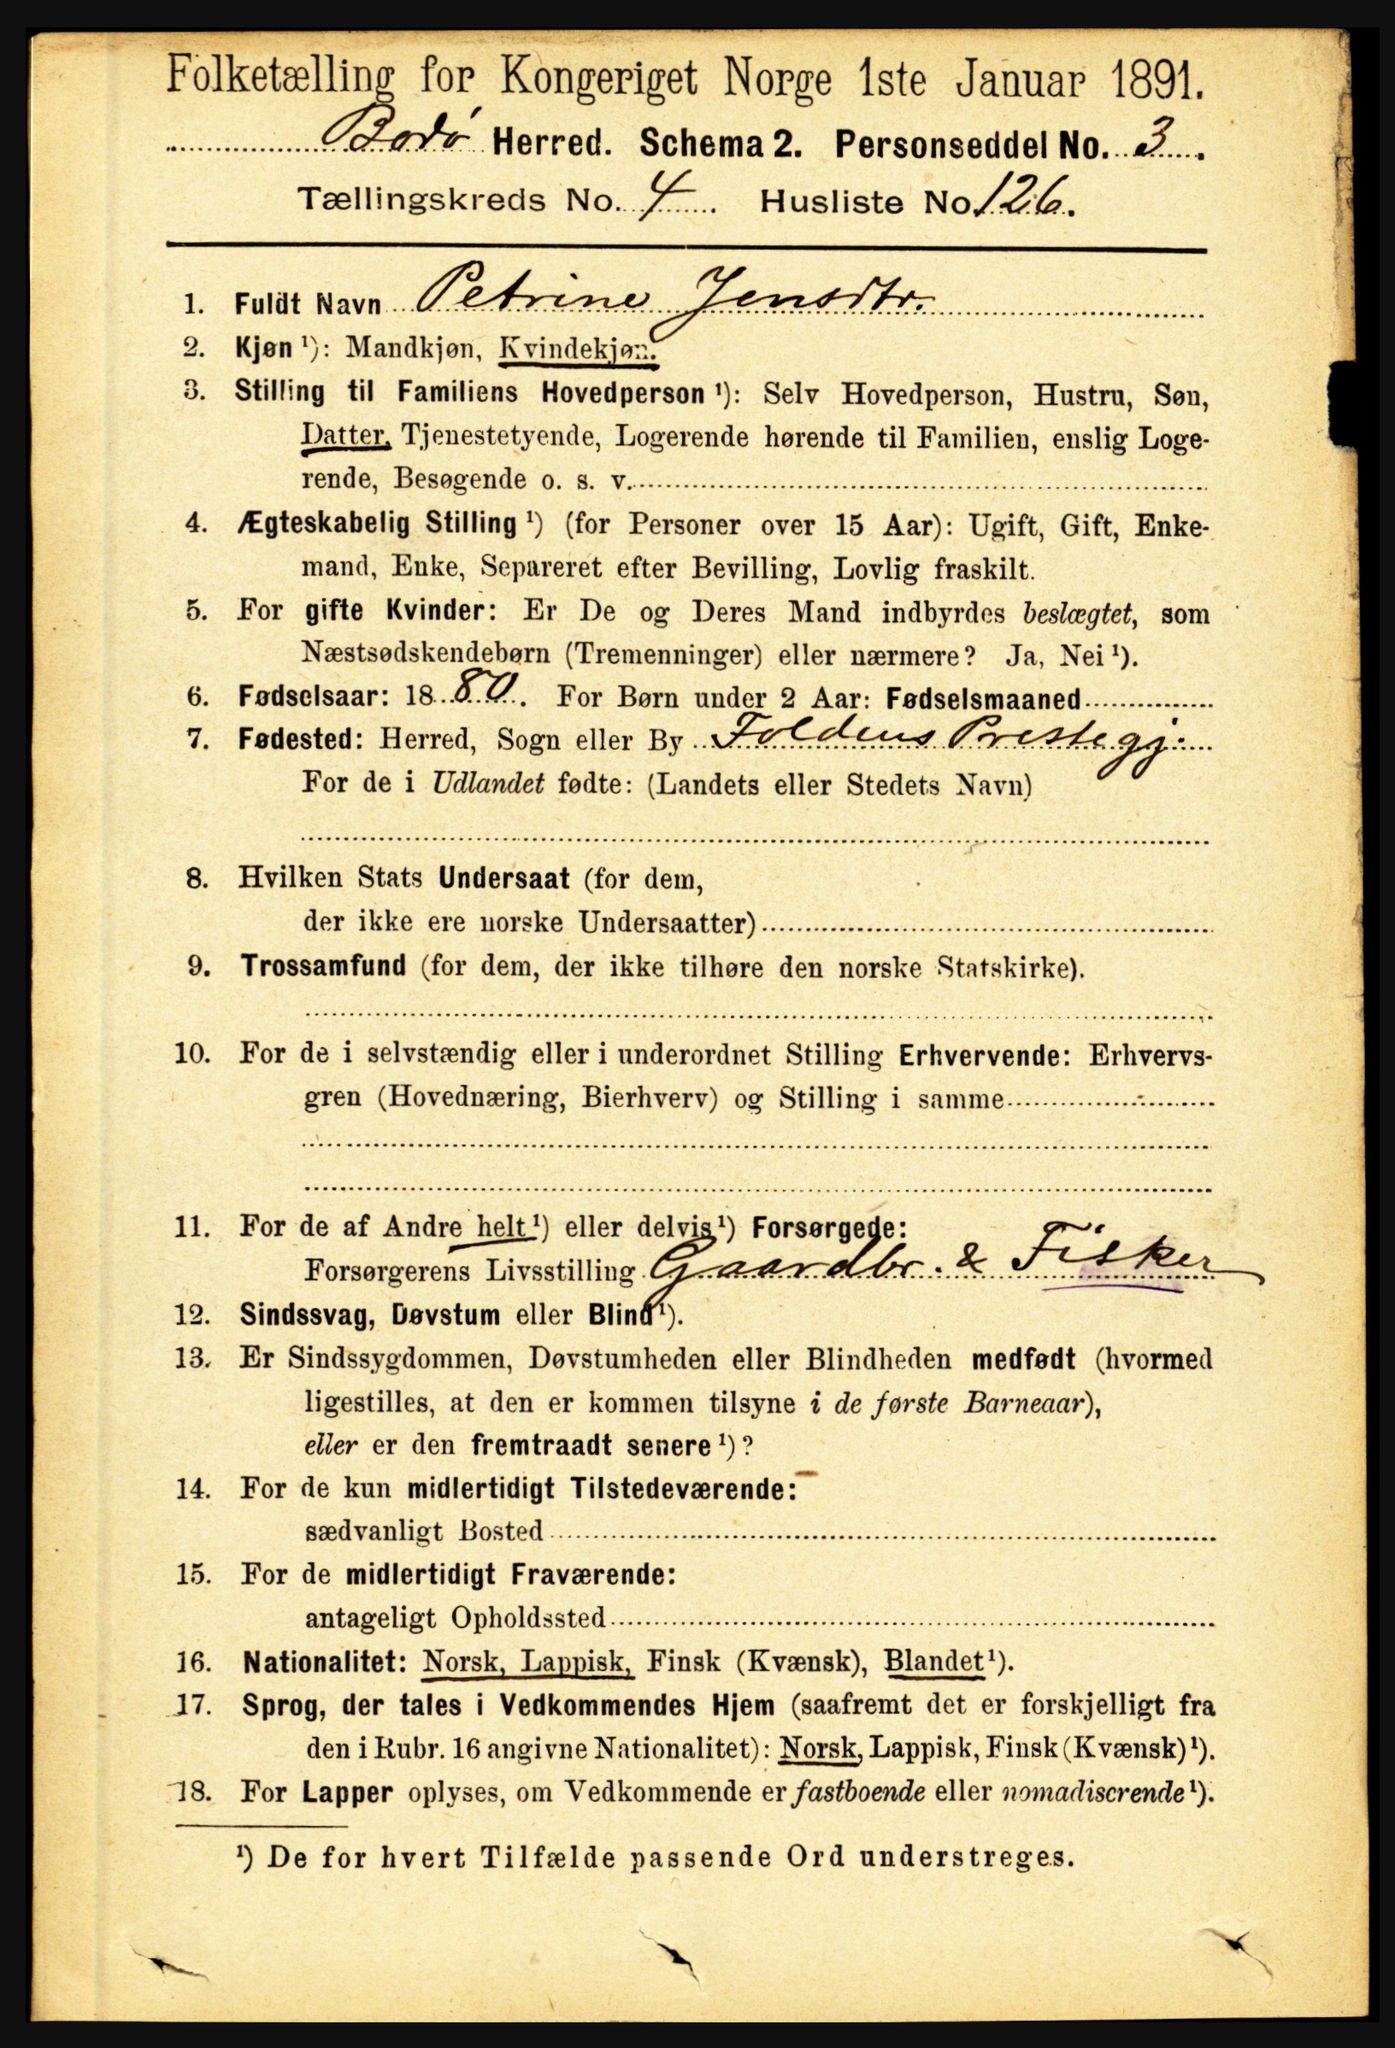 Folketælling for Kongeriget Norge 1ste Januar 1891.
Bodø Herred. Schema 2. Personseddel No. 3.
Tællingskreds No. 4. Husliste No 126.
1. Fuldt Navn Petrine Jensdtr.
2. Kjøn ¹): Mandkjøn, Kvindekjøn.
3. Stilling til Familiens Hovedperson ¹): Selv Hovedperson, Hustru, Søn,
Datter, Tjenestetyende, Logerende hørende til Familien, enslig Loge-
rende, Besøgende o. s. v.
4. Ægteskabelig Stilling ¹) (for Personer over 15 Aar): Ugift, Gift, Enke-
mand, Enke, Separeret efter Bevilling, Lovlig fraskilt.
5. For gifte Kvinder: Er De og Deres Mand indbyrdes beslægtet, som
Næstsødskendebørn (Tremenninger) eller nærmere? Ja, Nei ¹).
6. Fødselsaar: 1880. For Børn under 2 Aar: Fødselsmaaned
7. Fødested: Herred, Sogn eller By Foldens Prestegj.
For de i Udlandet fødte: (Landets eller Stedets Navn)
8. Hvilken Stats Undersaat (for dem,
der ikke ere norske Undersaatter)
9. Trossamfund (for dem, der ikke tilhøre den norske Statskirke).
10. For de i selvstændig eller i underordnet Stilling Erhvervende: Erhvervs-
gren (Hovednæring, Bierhverv) og Stilling i samme
11. For de af Andre helt ¹) eller delvis ¹) Forsørgede:
Forsørgerens Livsstilling Gaardbr. & Fisker
12. Sindssvag, Døvstum eller Blind ¹).
13. Er Sindssygdommen, Døvstumheden eller Blindheden medfødt (hvormed
ligestilles, at den er kommen tilsyne i de første Barneaar),
eller er den fremtraadt senere ¹)?
14. For de kun midlertidigt Tilstedeværende:
sædvanligt Bosted
15. For de midlertidigt Fraværende:
antageligt Opholdssted
16. Nationalitet: Norsk, Lappisk, Finsk (Kvænsk), Blandet ¹).
17. Sprog, der tales i Vedkommendes Hjem (saafremt det er forskjelligt fra
den i Rubr. 16 angivne Nationalitet): Norsk, Lappisk, Finsk (Kvænsk) ¹).
18. For Lapper oplyses, om Vedkommende er fastboende eller nomadiserende ¹).
¹) De for hvert Tilfælde passende Ord understreges.